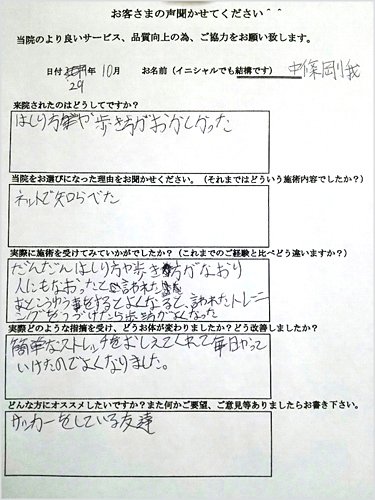 お客さまの声聞かせてください＾＾
当院のより良いサービス、品質向上の為、ご協力をお願い致します。
日付 29年 10月 お名前（イニシャルでも結構です） 中條剛我
来院されたのはどうしてですか？
はしり方や歩き方がおかしかった
当院をお選びになった理由をお聞かせください。（それまではどういう施術内容でしたか？）
ネットで知らべた
実際に施術を受けてみていかがでしたか？（これまでのご経験と比べどう違いますか？）
だんだんはしり方や歩き方がなおり
人にもなおったと言われた
あとこうゆう事をするとよくなるって言われたトレーニ
ングをつづけたら歩き方がよくなった
実際どのような指摘を受け、どうお体が変わりましたか？どう改善しましたか？
簡単なストレッチをおしえてくれて毎日やって
いけたのでよくなりました。
どんな方にオススメしたいですか？また何かご要望、ご意見等ありましたらお書き下さい。
サッカーをしている友達